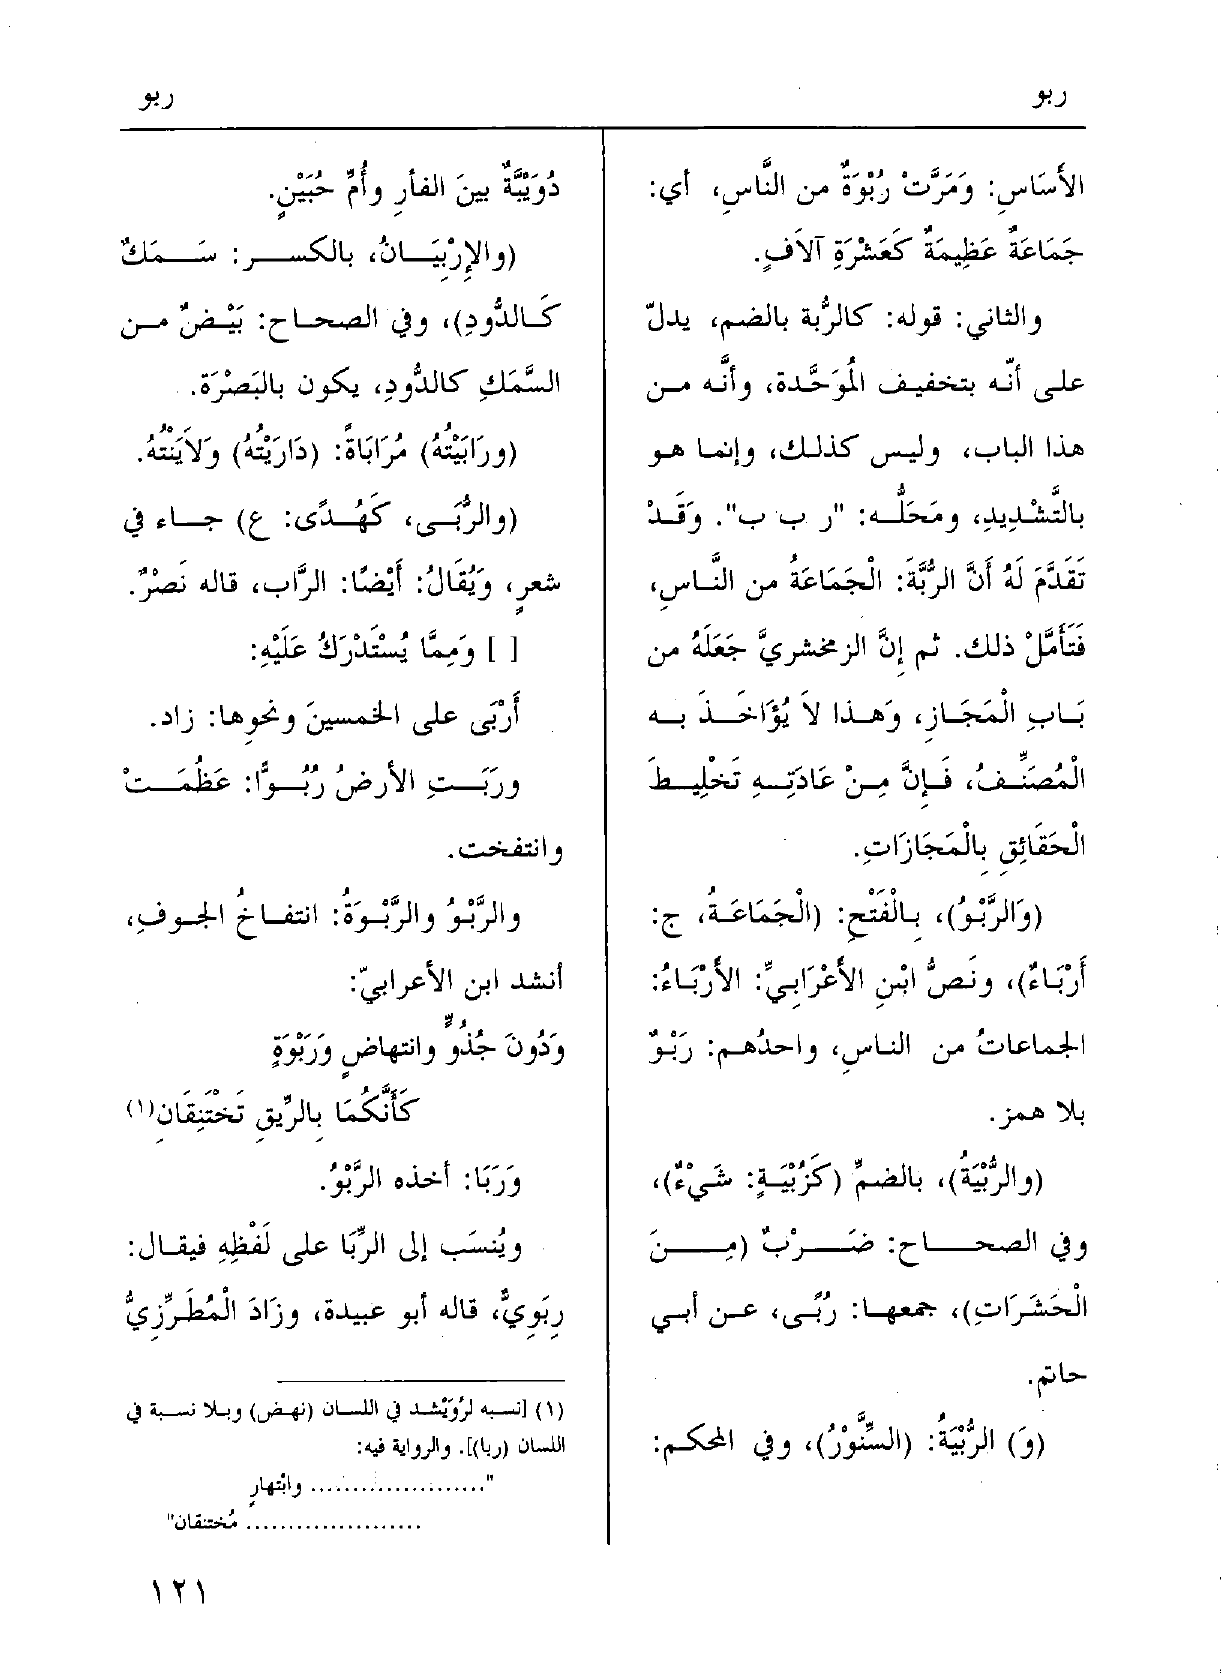 ربو
ربو
الأَسَاسِ: وَمَرَّتْ رُبْوَةٌ من النَّاسِ، أي:
جَمَاعَةٌ عَظِيمَةٌ كَعَشْرَةِ آلاَفٍ.
والثاني: قوله: كالرُّبة بالضم، يدلّ
على أنّه بتخفيف المُوَحَّدة، وأنَّه من
هذا الباب، وليس كذلك، وإنما هو
بالتَّشْدِيدِ، ومَحَلُّه: "ر ب ب". وَقَدْ
تَقَدَّمَ لَهُ أَنَّ الرُّبَّةَ: الْجَمَاعَةُ من النَّاسِ،
فَتَأَمَّلْ ذلك. ثم إنَّ الزمخشريَّ جَعَلَهُ من
بَابِ الْمَجَازِ، وَهذا لاَ يُؤَاخَذَ به
الْمُصَنِّفُ، فَإِنَّ مِنْ عَادَتِهِ تَخْلِيطَ
الْحَقَائِقِ بِالْمَجَازَاتِ.
(وَالرَّبْوُ)، بِالْفَتْحِ: (الْجَمَاعَةُ، ج:
أَرْبَاءٌ)، ونَصُّ ابْنِ الأَعْرَابِيِّ: الأَرْبَاءُ:
الجماعاتُ من الناسِ، واحدُهم: رَبْوٌ
بلا همز.
(والرُّبْيَةُ)، بالضمِّ (كَزُبْيَةٍ: شَيْءٌ)،
وفي الصحاح: ضَرْبٌ (مِنَ
الْحَشَرَاتِ)، جمعها: رُبًى، عن أبي
حاتم.
(وَ) الرُّبْيَةُ: (السِّنَّوْرُ)، وفي المحكم:
دُوَيْبَّةٌ بينَ الفأرِ وأُمِّ حُبَيْنٍ.
(والإِرْبِيَانُ، بالكسر: سَمَكٌ
كَالدُّودِ)، وفي الصحاح: بَيْضٌ من
السَّمَكِ كالدُّودِ، يكون بالبَصْرَة.
(ورَابَيْتُهُ) مُرَابَاةً: (دَارَيْتُهُ) وَلاَيَنْتُهُ.
(والرُّبَى، كَهُدًى: ع) جاء في
شعرٍ، وَيُقَالُ: أَيْضًا: الرَّاب، قاله نَصْرٌ.
[ ] وَمِمَّا يُسْتَدْرَكُ عَلَيْهِ:
أَرْبَى على الخمسينَ ونحوها: زاد.
ورَبَتِ الأرضُ رُبُوًّا: عَظُمَتْ
وانتفخت.
والرَّبْوُ والرَّبْوَةُ: انتفاخُ الجوفِ،
أنشد ابن الأعرابيّ:
وَدُونَ جُذُوٍّ وانتهاضٍ وَرَبْوَةٍ
كَأَنَّكُمَا بِالرِّيقِ تَخْتَنِقَانِ(١)
وَرَبَا: أخذه الرَّبْوُ.
ويُنسَب إلى الرِّبَا على لَفْظِهِ فيقال:
رِبَوِيٌّ، قاله أبو عبيدة، وزَادَ الْمُطَرِّزِيُّ
(١) [نسبه لرُوَيْشد في اللسان (نهض) وبلا نسبة في
اللسان (ربا)]. والرواية فيه:
"..................... وابْتهارٍ
..................... مُختنقان"
١٢١